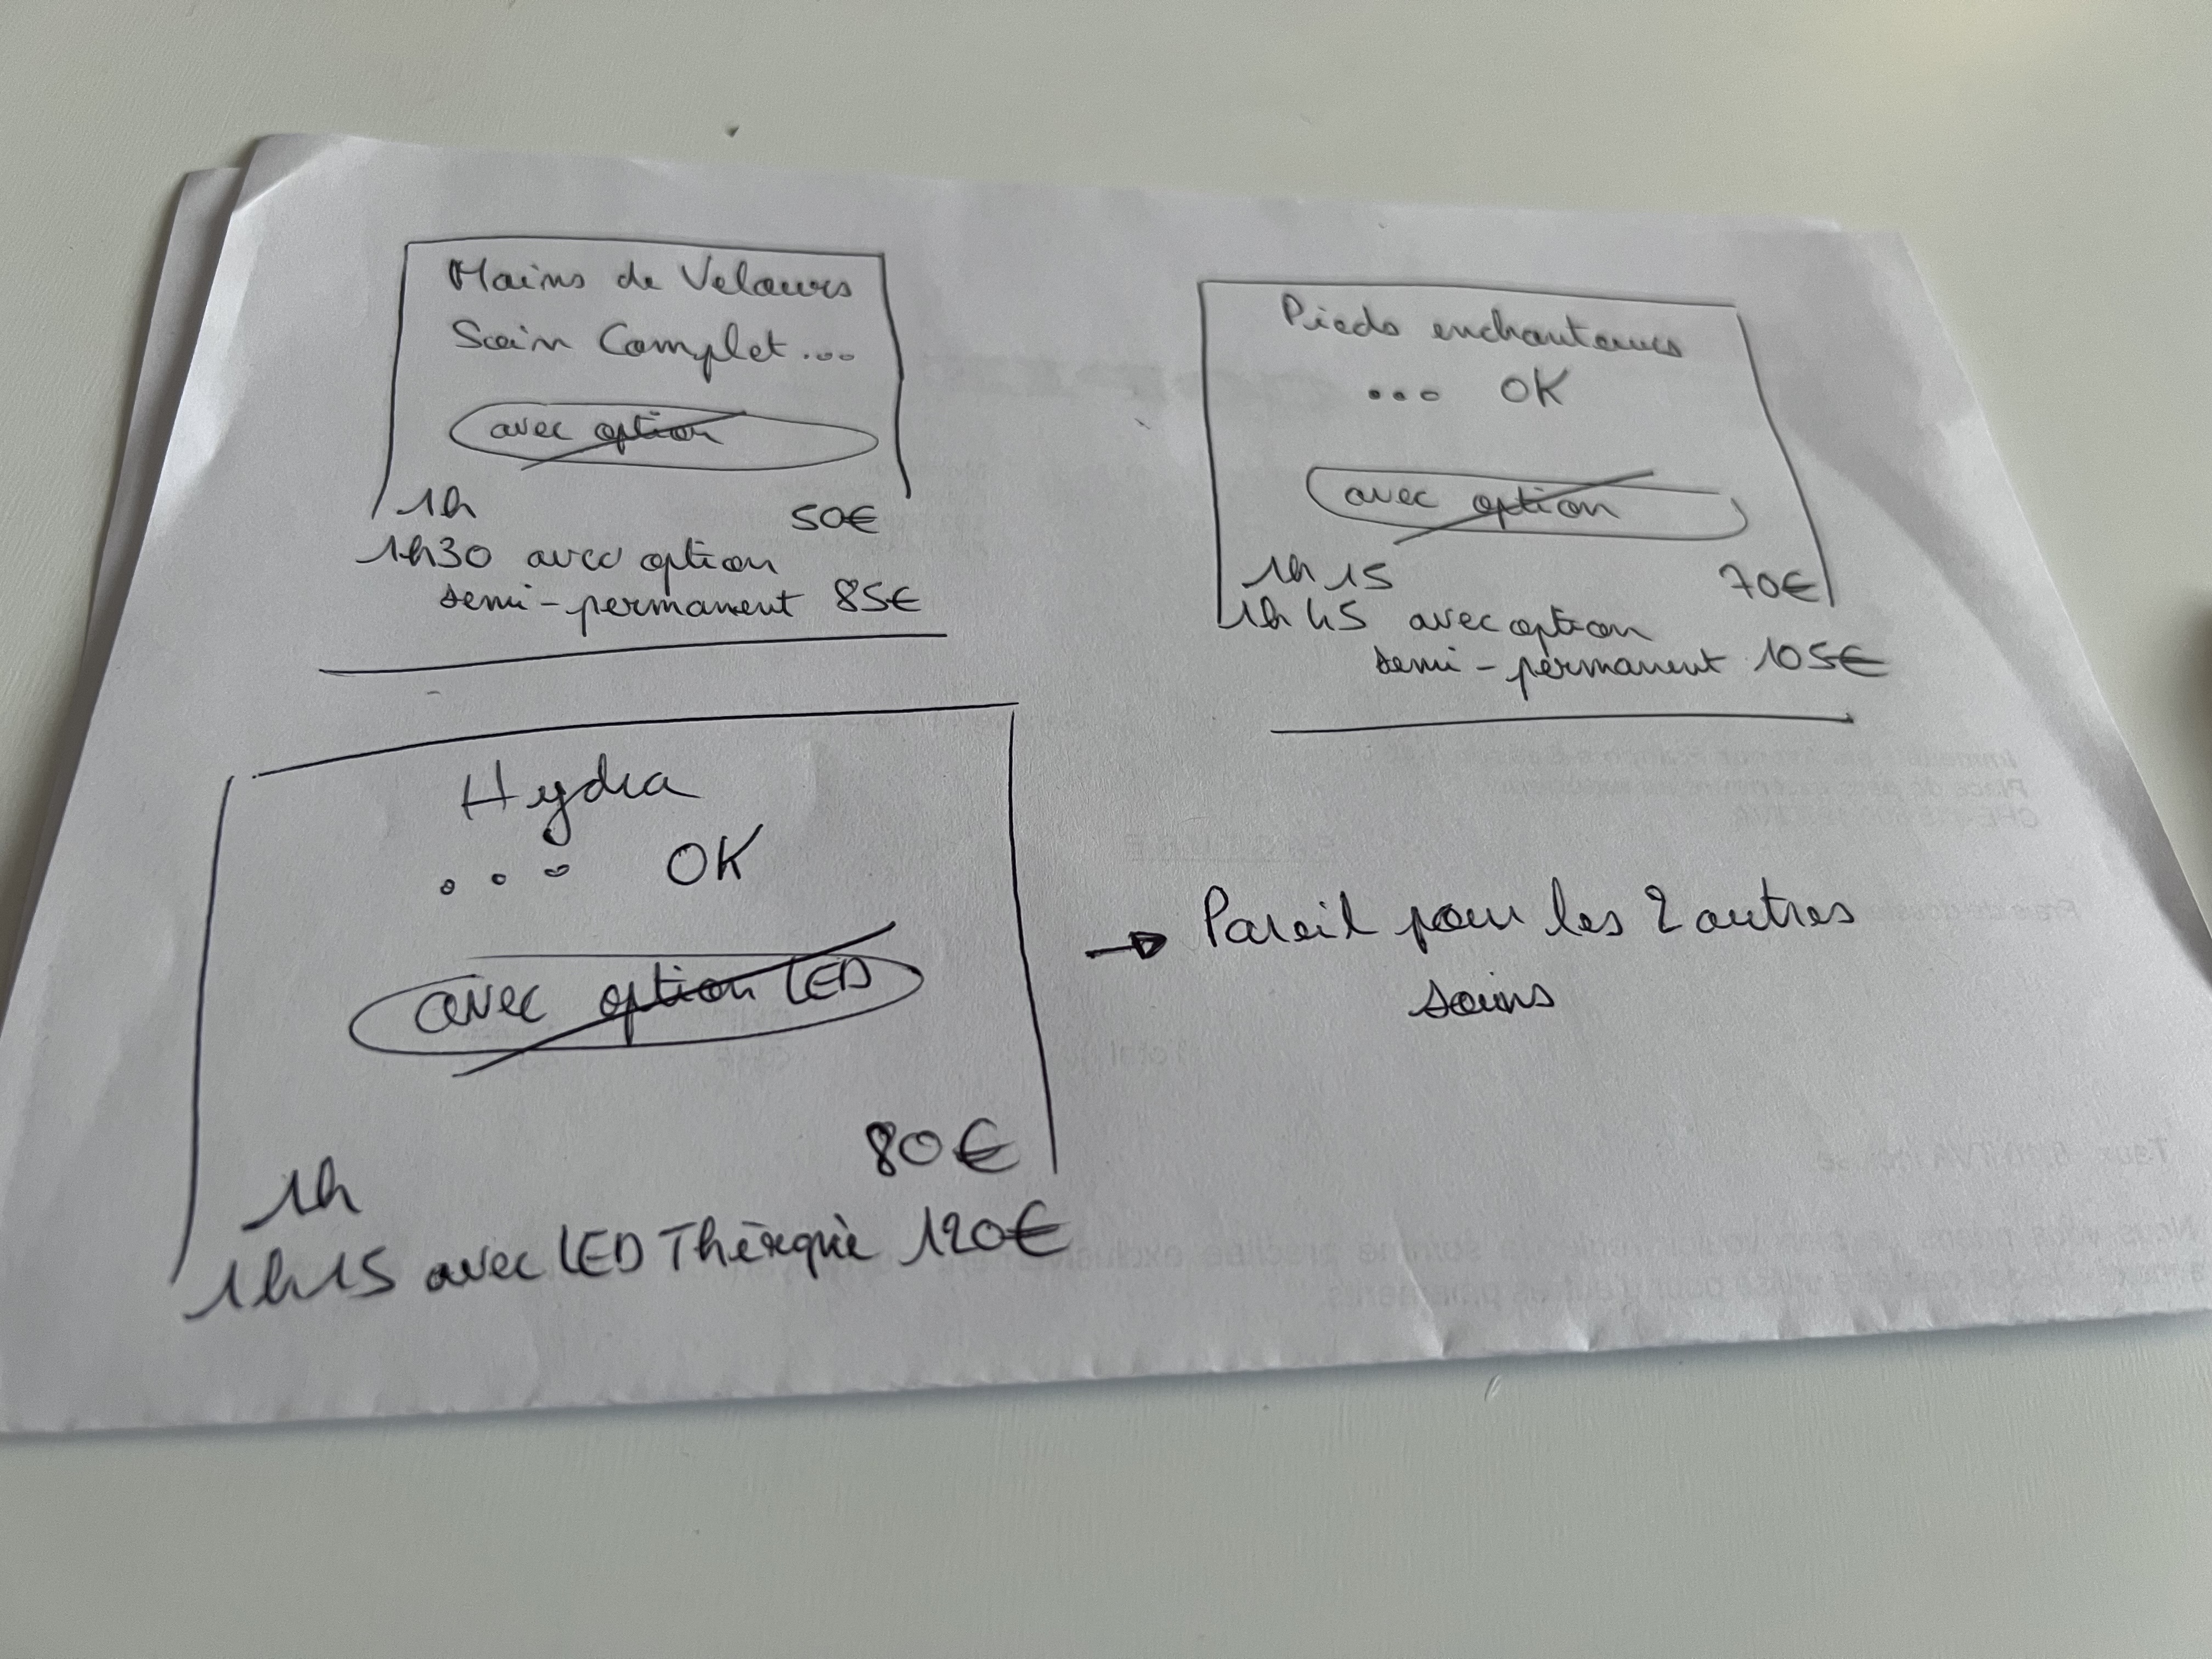 Mains de Velours
Soin Complet...
avec option
1h 50€
1h30 avec option
semi-permanent 85€
Pieds enchanteurs
... OK
avec option
1h15 70€
1h45 avec option
semi-permanent 105€
Hydra
... OK
avec option LED
1h 80€
1h15 avec LED Thérapie 120€
→ Pareil pour les 2 autres
soins